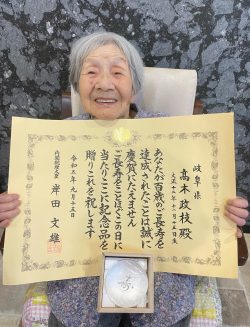 岐阜県
高木政枝 殿
大正十二年十一月十五日生
あなたが百歳のご長寿を
達成されたことは誠に
慶賀にたえません
ご長寿をことほぐこの日に
当たりここに記念品を
贈りこれを祝します
令和五年九月十五日
内閣総理大臣 岸田文雄
寿